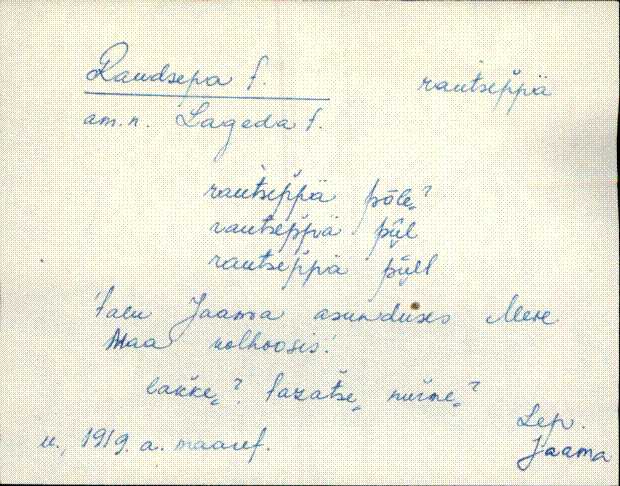 Raudsepa t. rautseppä
am.n. Lageda t.
rautseppä põle?
rautseppä pül
rautseppä pült
talu Jaama asunduses Mere
Maa kolhoosis.
lakke? tazatse nurme?
Lep.
u., 1919. a. maaref. Jaama